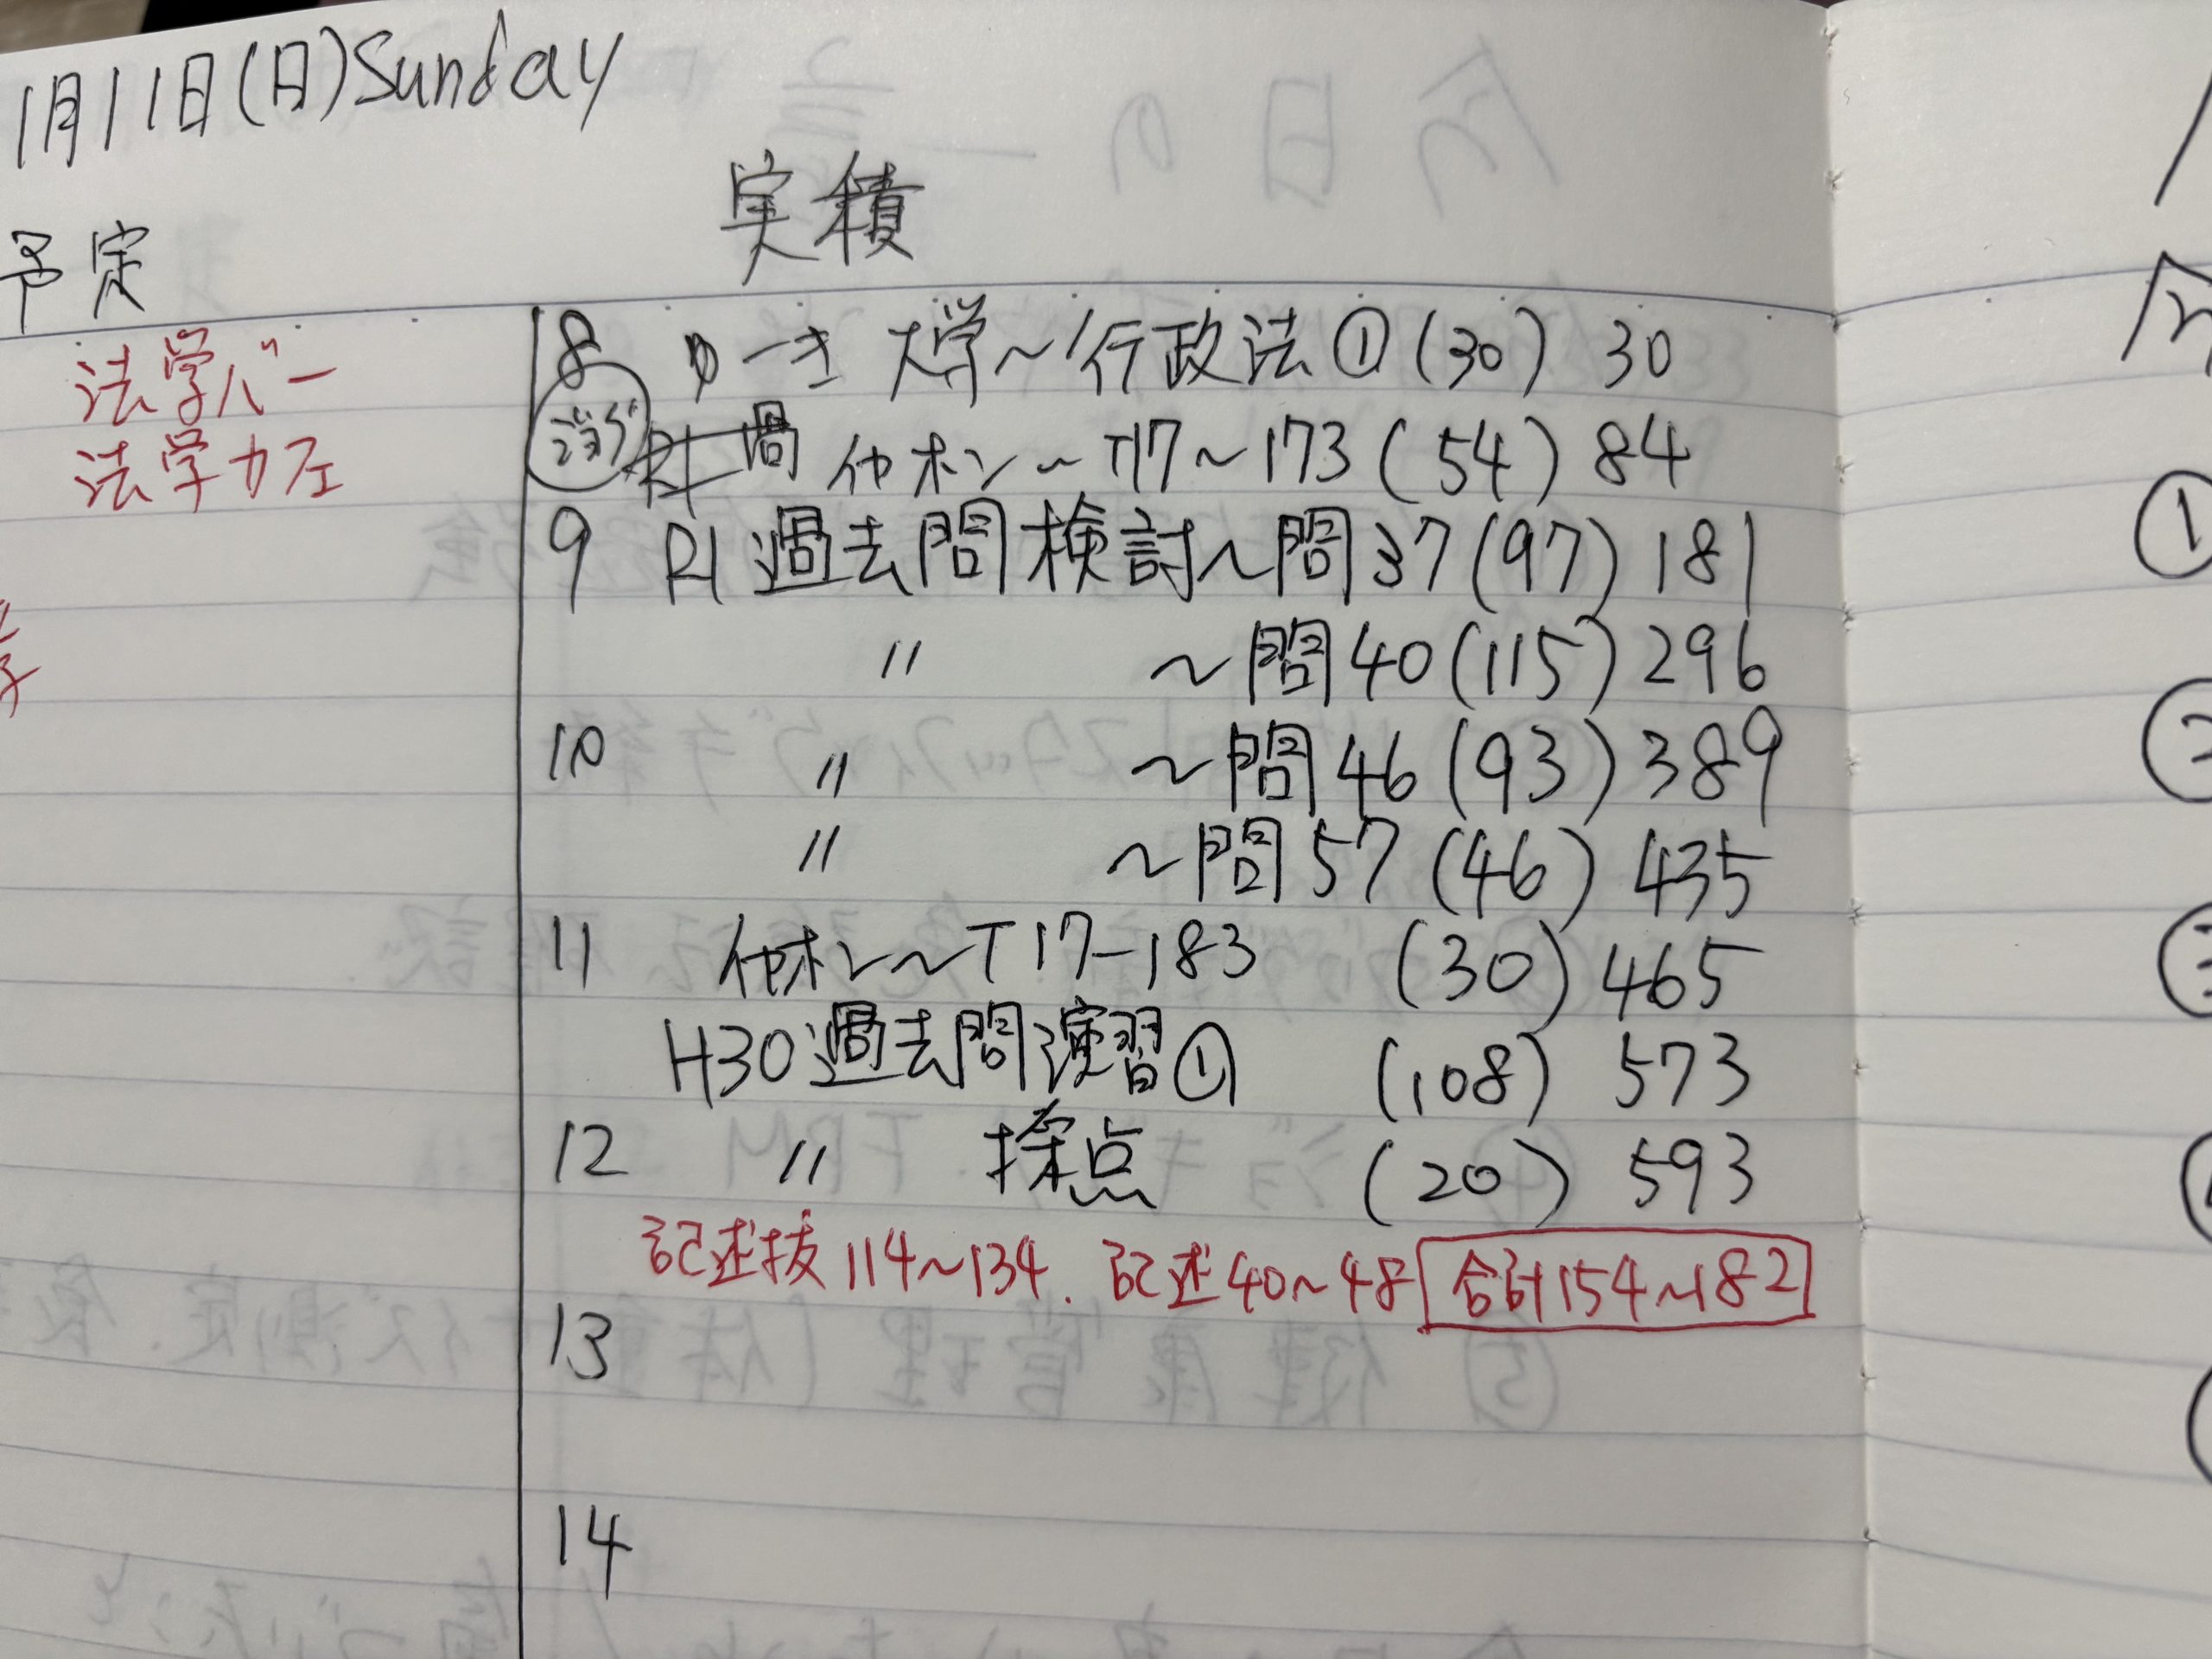 1月11日(日)Sunday
予定
実積
法学バー
法学カフェ
8 ゆーき大学〜行政法①(30) 30
過 仕ホン〜T17〜173(54) 84
9 R1過去問検討〜問37(97) 181
〃 〜問40(115) 296
10 〃 〜問46(93) 389
〃 〜問57(46) 435
11 仕ホン〜T17-183 (30) 465
H30過去問演習① (108) 573
12 〃 採点 (20) 593
記述抜114〜134. 記述40〜48 合計154〜182
13
14
①
②